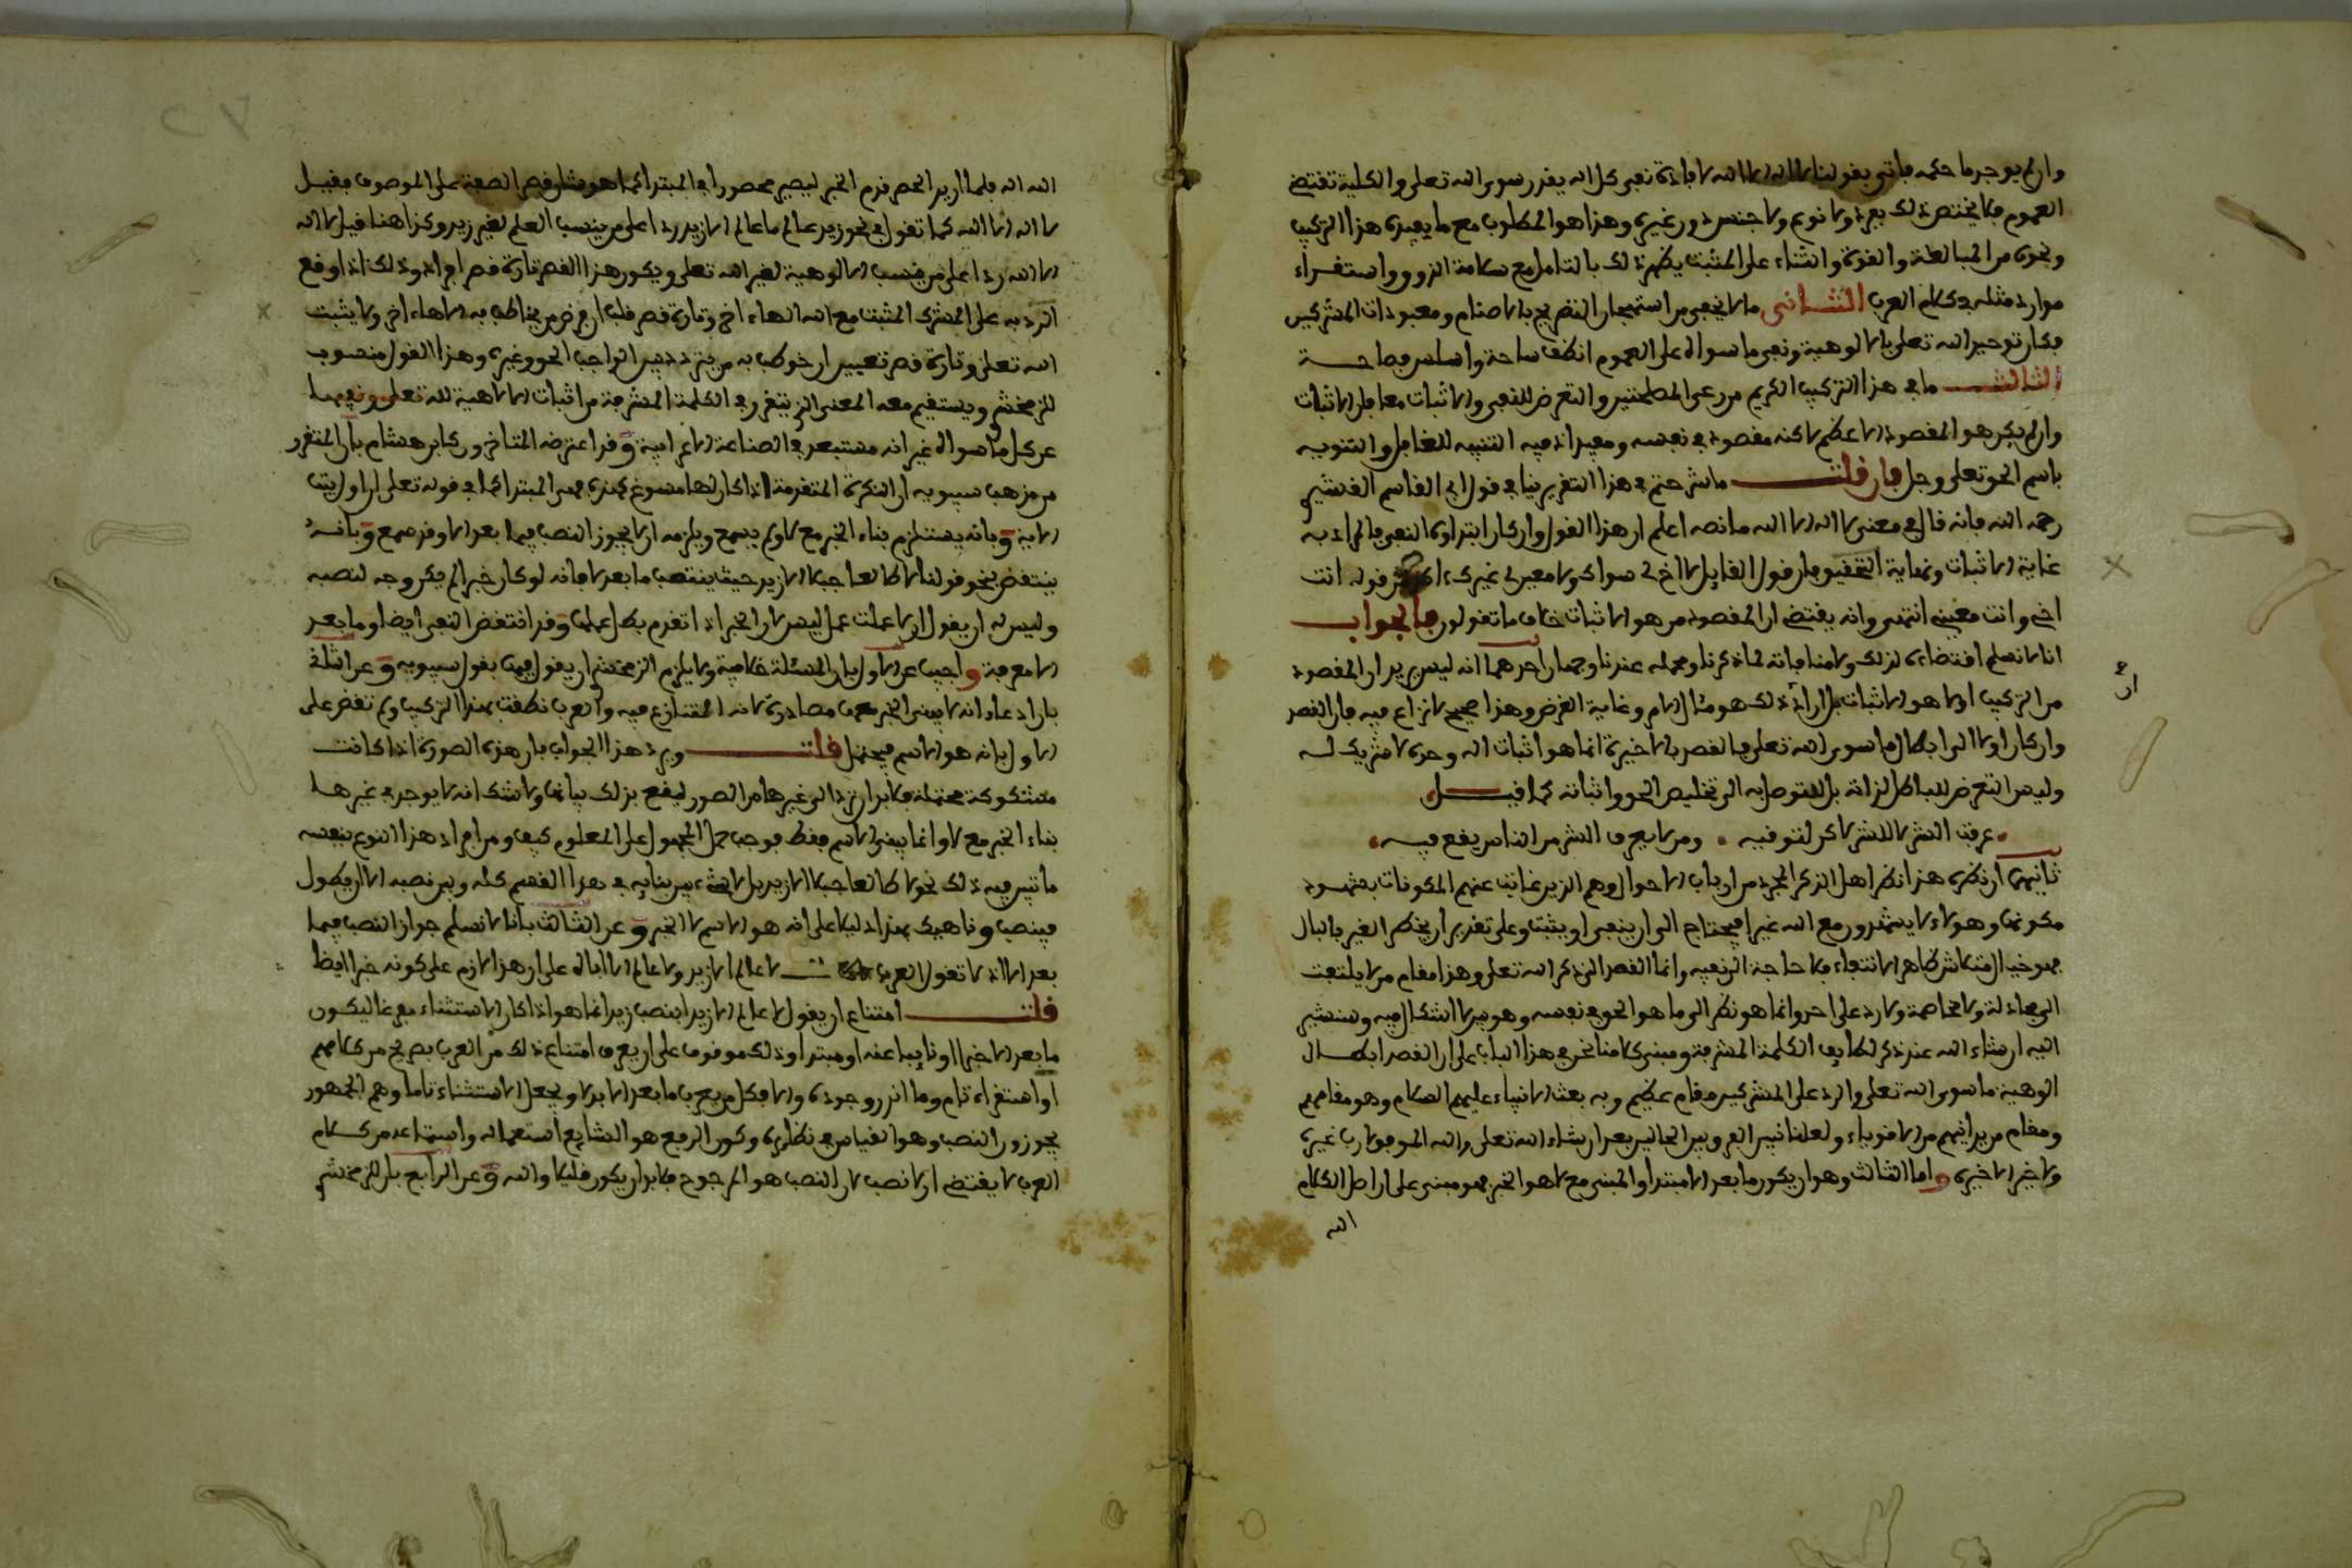 وان لم يوجد ما حكمه فاتى بقولنا لا اله الا الله لافادة نفي كل اله يقدر سوى الله تعلى والكلية تقتضي
العموم فلا يختص ذلك بفرد ولا نوع ولا جنس دون غيره وهذا هو المطلوب مع ما يفيده هذا التركيب
ونحوه من المبالغة والقوة والثناء على المثبت يظهر ذلك بالتامل مع سلامة الذوق واستقراء
موارد مثله في كلام العرب الثاني ما لا يخفى من استهجان التصريح بالاصنام ومعبودات المشركين
فكان توحيد الله تعلى بالالوهية ونفي ما سواه على العموم انظف ساحة واسلس فصاحة
الثالث ما في هذا التركيب الكريم من رعي المطلبين والتعرض للنفي والاثبات معا فان الاثبات
وان لم يكن هو المقصود الاعظم لاكنه مقصود في نفسه ومفيد اذ فيه التنبيه للغافل والتنويه
باسم الحق تعلى وجل فان قلت ما شرحتم في هذا التقرير ينافي قول ابي القاسم القشيري
رحمه الله فانه قال في معنى لا اله الا الله ما نصه اعلم ان هذا القول وان كان ابتداوه النفي فالمراد به
غاية الاثبات ونهاية التحقيق فان قول القايل لا اخ لي سواك ولا معين لي غيرك اكد من قوله انت
اخي وانت معيني انتهى وانه يقتضي ان المقصود من هو الاثبات خلاف ما تقولون فالجواب
انا لا نسلم اقتضاءه لذلك ولا منافاته لما ذكرنا ومحمله عندنا وجهان احدهما انه ليس يريد ان المقصود
من التركيب اولا هو الاثبات بل اراد ان ذلك هو مئال الامر وغاية الغرض وهذا صحيح لا نزاع فيه فان القصد
وان كان اولا الى ابطال ما سوى الله تعلى فالقصد بالاخيرة انما هو اثبات اله وحده لا شريك له
وليس التعرض للباطل لذاته بل للتوصل به الى تخليص الحق واثباته كما قيل
عرفت الشر لا للشر لاكن لتوقيه ومن لا يعرف الشر من الناس يقع فيه
ثانيهما ان نظره هذا نظر اهل الذكر المجرد من ارباب الاحوال وهم الذين غابت عنهم المكونات بشهود
مكونها وهولاء لا يشهدون مع الله غيرا فيحتاج الى ان ينفي او يثبت وعلى تقدير ان يخطر الغير بالبال
فهو خيال متلاش ظاهر الانتفاء فلا حاجة الى نفيه وانما القصد الى ذكر الله تعلى وهذا مقام من لا يلتفت
الى مجادلة ولا مخاصمة ولا رد على احد وانما هو نظر الى ما هو الحق في نفسه وهو مما لا اشكال فيه وسنشير
اليه ان شاء الله عند ذكر لطايف الكلمة المشرفة ومبنى كلامنا نحن في هذا الباب على ان القصد ابطال
الوهية ما سوى الله تعلى والرد على المشركين مقام عظيم وبه بعث الانبياء عليهم السلام وهو مقامهم
ومقام من يرثهم من الاقوياء ولعلنا نبين الفرق بين الحالين بعد ان شاء الله تعلى والله الموفق لا رب غيره
ولا خير الا خيره واما الثالث وهو ان يكون ما بعد الا مبتدا والمبني مع لا هو الخبر فهو مبني على ان اصل الكلام
الله
ان
الله اله فلما اريد الحصر قدم الخبر ليصير محصورا في المبتدا كما هو شان قصر الصفة على الموصوف فقيل
لا اله الا الله كما تقول في نحو زيد عالم ما عالم الا زيد ردا على من ينسب العلم لغير زيد وكذا هنا قيل لا اله
الا الله ردا على من ينسب الالوهية لغير الله تعلى ويكون هذا القصر تارة قصر افراد وذلك اذا وقع
الرد به على المشرك المثبت مع الله الهاء اخر وتارة قصر قلب ان فرض من يخاطب به الاهاء اخر ولا يثبت
الله تعلى وتارة قصر تعيين ان خوطب به من يتردد بين الواجب الحق وغيره وهذا القول منسوب
للزمخشري ويستقيم معه المعنى الذي يتقرر في الكلمة المشرفة من اثبات الالاهية لله تعلى ونفيها
عن كل ما سواه غير انه مستبعد في الصناعة الاعرابية وقد اعترضه المتاخرون كابن هشام بان المتقرر
من مذهب سيبويه ان النكرة المتقدمة اذا كان لها مسوغ كهذه هي المبتدا كما في قوله تعلى ان اول بيت
الاية وبانه يستلزم بناء الخبر مع لا ولم يسمع ويلزمه ان لا يجوز النصب فيما بعد الا وقد سمع وبانه
ينتقض بنحو قولنا لا طالعا جبلا الا زيد حيث ينتصب ما بعد لا فانه لو كان خبرا لم يكن وجه لنصبه
وليس له ان يقول ان لا عملت عمل ليس لان الخبر اذا تقدم بطل عملها وقد انتقض النفي ايضا وما بعد
الا معرفة واجيب عن الاول بان المسئلة خلافية ولا يلزم الزمخشري ان يقول فيها بقول سيبويه وعن الثاني
بان ادعاء انه لا يبنى الخبر معها مصادرة لانه المتنازع فيه والعرب نطقت بهذا التركيب ولم تنص على
الاول بانه هو الاسم فيحتمل قلت ويرد هذا الجواب بان هذه الصورة اذا كانت
مشكوكة محتملة فلا بد ان ترد الى غيرها من الصور ليقع بذلك بيانها ولا شك انه لا يوجد في غيرها
بناء الخبر مع لا وانما يبنى الاسم فقط فوجب حمل المجهول على المعلوم كيف ومن افراد هذا النوع بنفسه
ما تبين فيه ذلك نحو لا طالعا جبلا الا زيد بل لا شيء يبين بنايه في هذا القسم كله وبين نصبه الا ان يطول
فينصب وناهيك بهذا دليلا على انه هو الاسم لا الخبر وعن الثالث بانا لا نسلم جواز النصب فيما
بعد الا اذ لا تقول العرب لا عالم الا زيد ولا عالم الا اباه على ان هذا لازم على كونه خبرا ايضا
قلت امتناع ان يقول لا عالم الا زيدا بنصب زيد انما هو اذا كان الاستثناء مفرغا ليكون
ما بعد الا خبرا او نايبا عنه او مبتدا وذلك موقوف على ان يعرف امتناع ذلك من العرب بصريح من كلامهم
او استقراء تام وما انزر وجوده والا فكل من يعرب ما بعد الا بدلا ويجعل الاستثناء تاما وهم الجمهور
يجوزون النصب وهو القياس في نظايره وكون الرفع هو الشايع استعماله واستماعه من كلام
العرب لا يقتضي ان لا نصب لان النصب هو المرجوح فلا بد ان يكون قليلا والله وعن الرابع بان للزمخشري